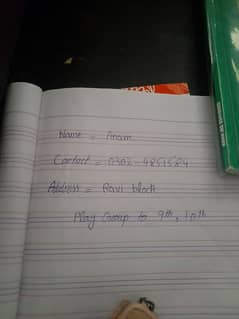 Name = Anam
Contact = 0302-4851584
Address = Ravi block
Play Group to 9th, 10th